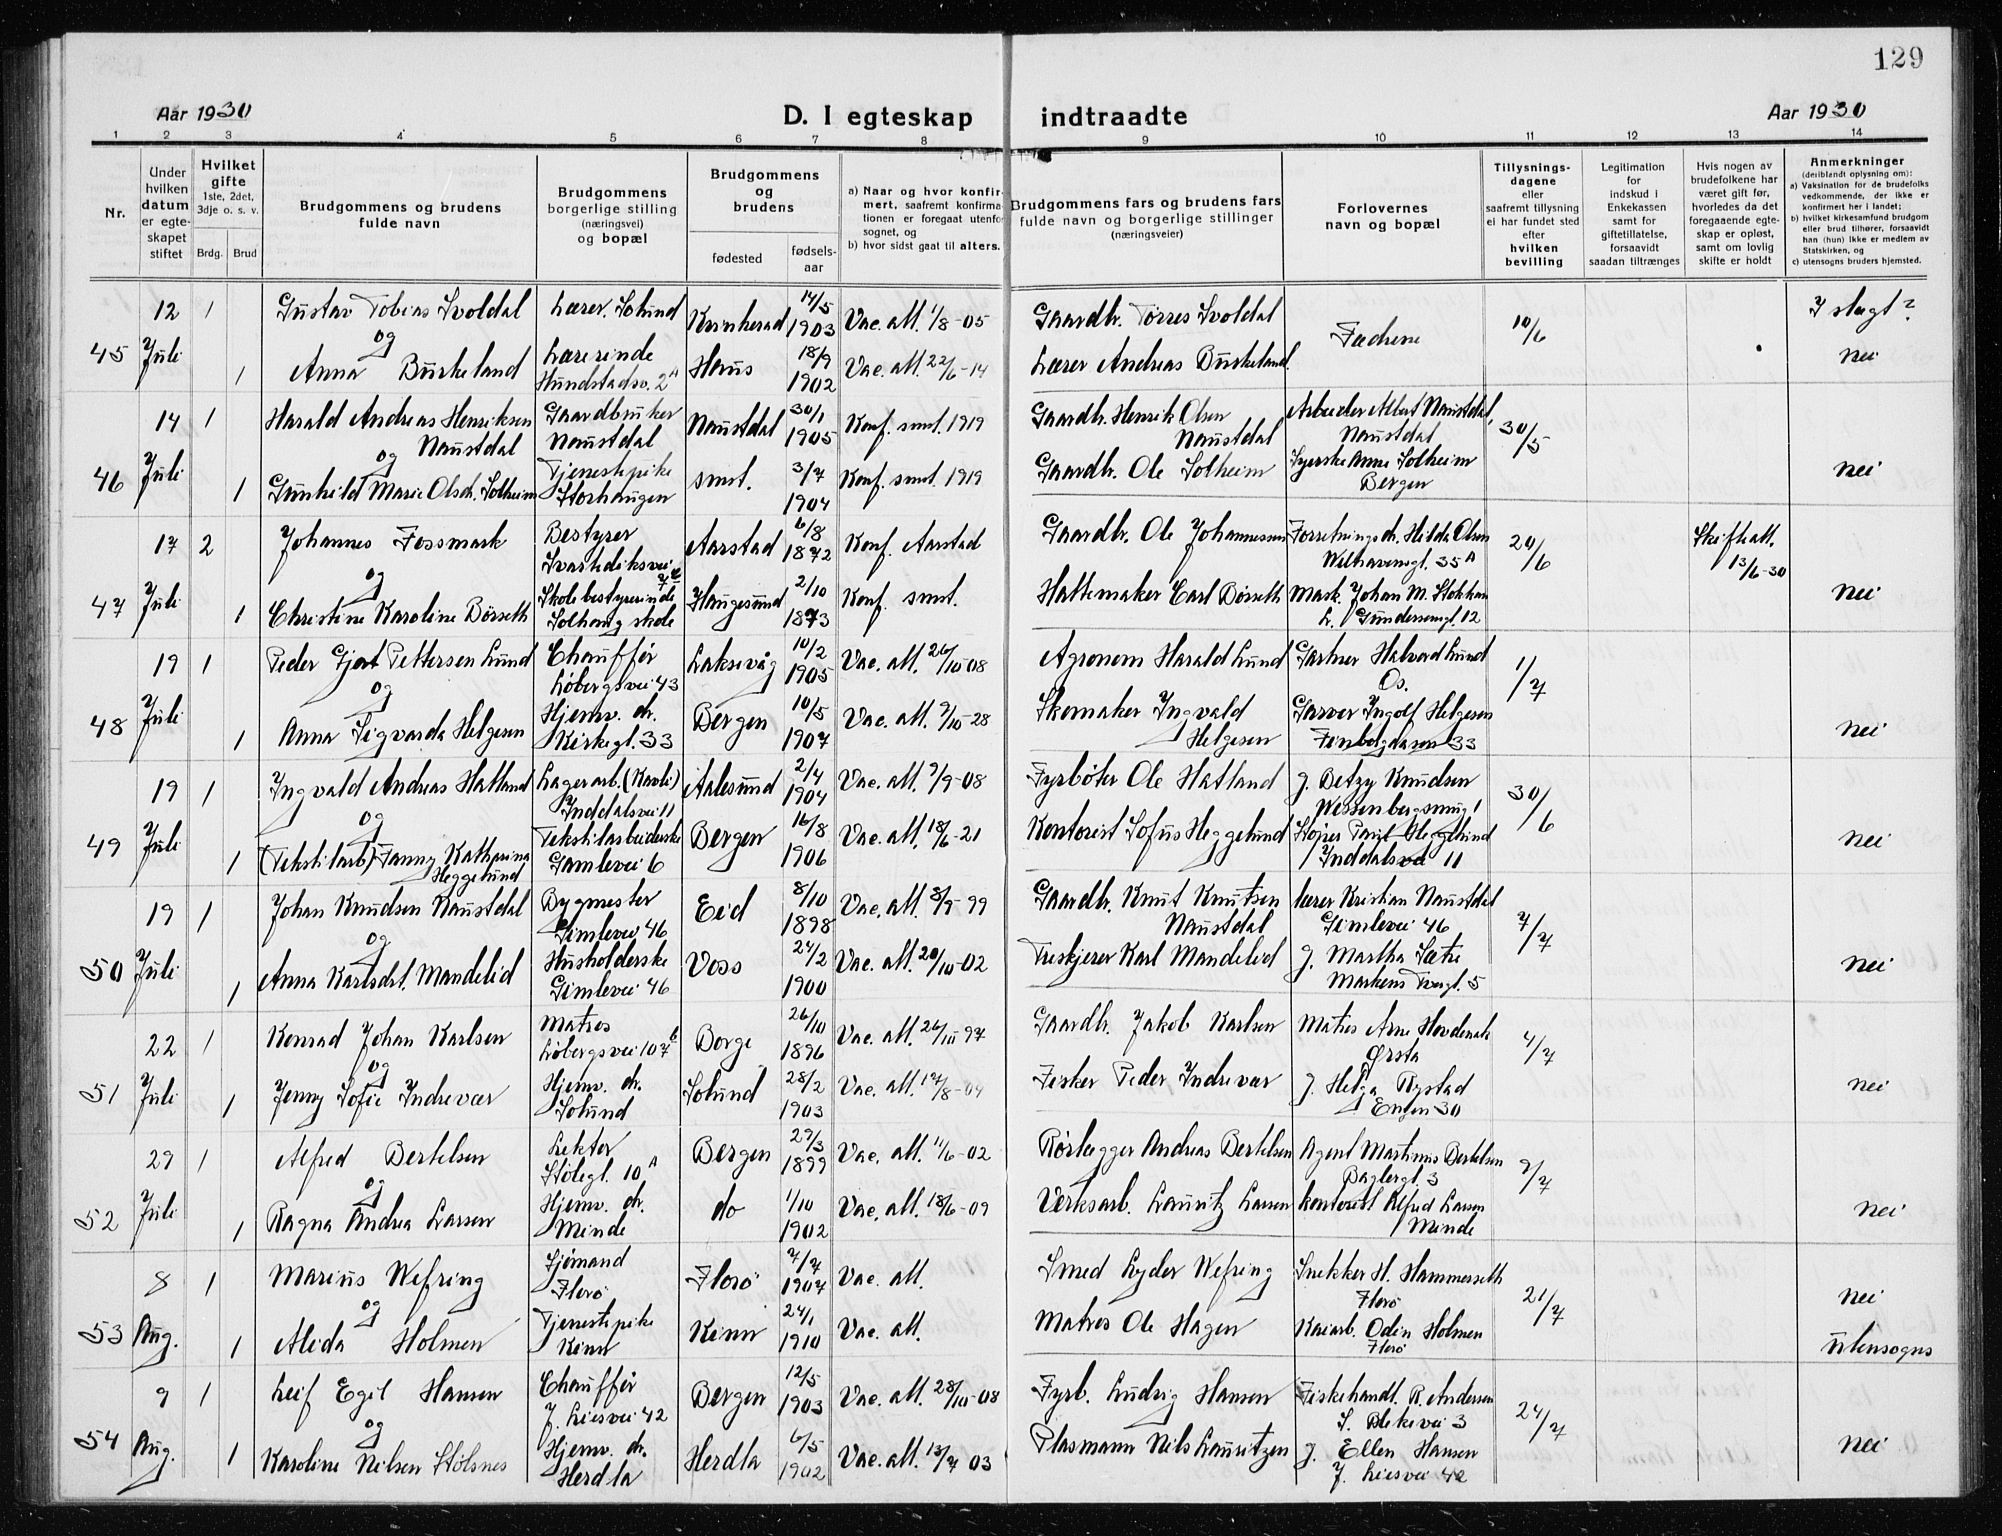 129
Aar 1930
D. I egteskap indtraadte
Aar 1930
1 2 3 4 5 6 7 8 9 10 11 12 13 14
Nr.
Under hvilken datum er egteskapet stiftet
Hvilket gifte 1ste, 2det, 3dje o. s. v.
Brdg. Brud
Brudgommens og brudens fulde navn
Brudgommens borgerlige stilling (næringsvei) og bopæl
Brudgommens og brudens
fødested
fødselsaar
a) Naar og hvor konfirmert, saafremt konfirmationen er foregaaet utenfor sognet, og
b) hvor sidst gaat til alters.
Brudgommens fars og brudens fars fulde navn og borgerlige stillinger (næringsveier)
Forlovernes navn og bopæl
Tillysningsdagene eller saafremt tillysning ei har fundet sted efter hvilken bevilling
Legitimation for indskud i Enkekassen samt for giftetillatelse, forsaavidt saadan tiltrænges
Hvis nogen av brudefolkene har været gift før, hvorledes da det foregaaende egteskap er opløst, samt om lovlig skifte er holdt
Anmerkninger (deriblandt oplysning om):
a) Vaksination for de brudefolks vedkommende, der ikke er konfirmert her i landet;
b) hvilket kirkesamfund brudgom eller brud tilhører, forsaavidt han (hun) ikke er medlem av Statskirken, og
c) utensogns bruders hjemsted.
45 12 Juli 1 Gustav Tobias Svoldal Lærer. Solund Kvinherad 14/5 1903 Vac. att. 1/8-05 Gaardbr. Tørres Svoldal Fædrene 10/6 I slegt?
og
1 Anna Burkeland Lærerinde Hundstadsv. 2A Haus 18/9 1902 Vac. att. 22/6-14 Lærer Andreas Burkeland. nei
46 14 Juli 1 Harald Andreas Henriksen Naustdal Gaardbruker Naustdal Naustdal 30/1 1905 Konf. smst. 1919 Gaardbr. Henrik Olsen Naustdal Arbeider Albert Naustdal, Naustdal 30/5
og
1 Gunhild Marie Olsdr. Solheim Tjenestepike Storhaugen smst. 3/7 1904 Konf. smst. 1919 Gaardbr. Ole Solheim Syerske Anne Solheim Bergen nei
47 17 Juli 2 Johannes Fossmark Bestyrer Svartediksvei 7 Aarstad 6/8 1872 Konf. Aarstad Gaardbr. Ole Johannessen Forretningsdr. Hilda Olsen Welhavensgt. 35A 20/6 Skifteatt. 13/6-30
og
1 Christine Karoline Børseth Skolebestyrerinde Solhaug skole Haugesund 2/10 1873 Konf. smst. Hattemaker Carl Børseth Mask. Johan M. Stokkan L. Gundersensgt. 12 nei
48 19 Juli 1 Peder Gjert Pettersen Lund Chauffør Løbergsvei 43 Laksevåg 10/2 1905 Vac. att. 26/10-08 Agronom Harald Lund Gartner Halvord Lund Os. 1/7
og
1 Anna Sigvarda Helgesen Hjemv. dr. Kirkegt. 33 Bergen 10/5 1907 Vac. att. 9/10-28 Skomaker Ingvald Helgesen Garver Ingolf Helgesen 33 nei
49 19 Juli 1 Ingvald Andreas Hatland Lagerarb. (Kavli) Inddalsvei 11 Aalesund 2/4 1904 Vac. att. 9/9-08 Fyrbøter Ole Hatland g. Betzy Knudsen Wessenbergsmug 1 30/6
og
1 (Tekstilarb) Fanny Kathrina Heggelund Tekstilarbeiderske Gamlevei 6 Bergen 16/8 1906 Vac. att. 18/6-21 Kontorist Sofus Heggelund Heggelund Inddalsvei 11 nei
50 19 Juli 1 Johan Knudsen Naustdal Bygmester Gimlevei 46 Eid 8/10 1898 Vac. att. 8/9-99 Gaardbr. Knut Knutsen Naustdal Lærer Kristian Naustdal Gimlevei 46 7/7
og
1 Anna Karlsdt. Mandelid Husholderske Gimlevei 46 Voss 24/2 1900 Vac. att. 20/10-02 Treskjerer Karl Mandelid g. Martha Sætre Markens Tvergt. 5 nei
51 22 Juli 1 Konrad Johan Karlsen Matros Løbergsvei 107b Borge 26/10 1896 Vac. att. 26/10-97 Gaardbr. Jakob Karlsen Matros Arne Hovdenak Ørsta 4/7
og
1 Jenny Sofie Indrevær Hjemv. dr. Solund Solund 28/2 1903 Vac. att. 17/8-04 Fisker Peder Indrevær g. Helga Rystad Engen 30 nei
52 29 Juli 1 Alfred Bertelsen Lektor Stølegt. 10A Bergen 29/3 1899 Vac. att. 11/6-02 Rørlegger Andreas Bertelsen Agent Martinus Bertelsen Baglergt. 3 9/7
og
1 Ragna Andrea Larsen Hjemv. dr. Minde do 1/10 1902 Vac. att. 18/6-09 Verksarb. Lauritz Larsen Kontorist Alfred Larsen Minde nei
53 8 Aug. 1 Marius Wefring Sjømand Florø Florø 7/7 1907 Vac. att. Smed Lyder Wefring Snekker H. Hammerseth Florø 21/7 nei
og
1 Alida Holmen Tjenestepike Kinn Kinn 24/1 1910 Vac. att. Matros Ole Hagen Kaiarb. Odin Holmen Florø utensogns
54 9 Aug. 1 Leif Egil Hansen Chauffør J. Liesvei 42 Bergen 12/5 1903 Vac. att. 28/10-08 Fyrb. Ludvig Hansen Fiskehandl. R. Andersen S. Blekevei 3 24/7
og
1 Karoline Nilsen Stølsnes Hjemv. dr. Herdla Herdla 6/5 1902 Vac. att. 13/7 03 Plasmann Nils Lauritzen g. Ellen Hansen J. Liesvei 42 nei